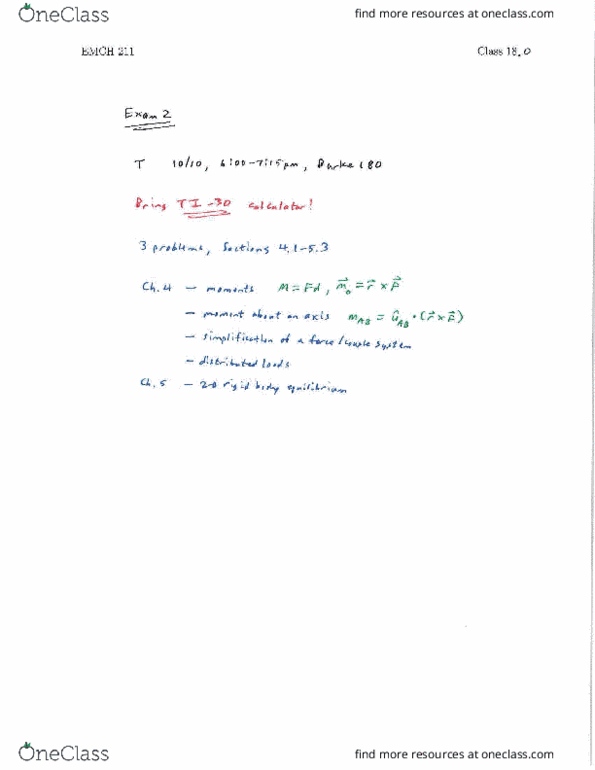 OneClass
find more resources at oneclass.com
EMCH 211
Class 18, 0
Exam 2
T 10/10, 6:00-7:15pm, Barke 180
Bring TI-30 calculator!
3 problems, Sections 4.1-5.3
Ch.4 - moments M=Fd, m⃗₀ = r⃗ x F⃗
- moment about an axis m_AB = û_AB · (r⃗ x F⃗)
- simplification of a force/couple system
- distributed loads
Ch. 5 - 2-D rigid body equilibrium
OneClass
find more resources at oneclass.com